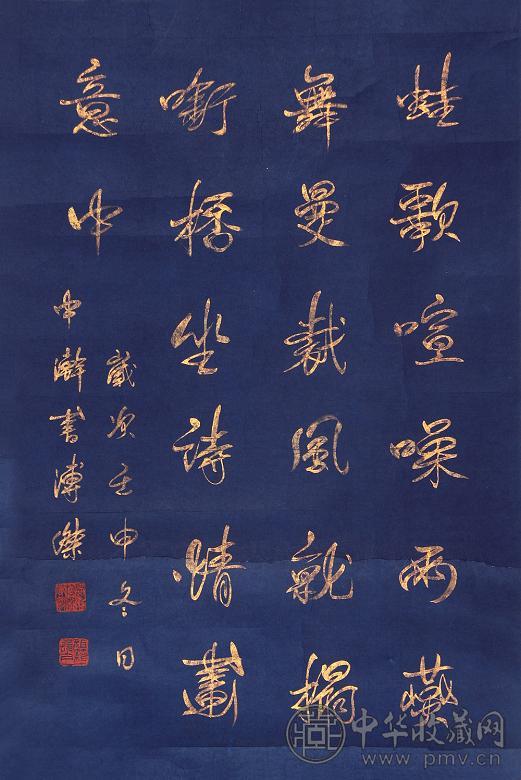 蛙歌喧噪雨
舞曼裁風就榻
嘶橋坐詩情畫
意中
歲次壬申冬日
中澣書溥傑
中华收藏网
www.pmv.cn